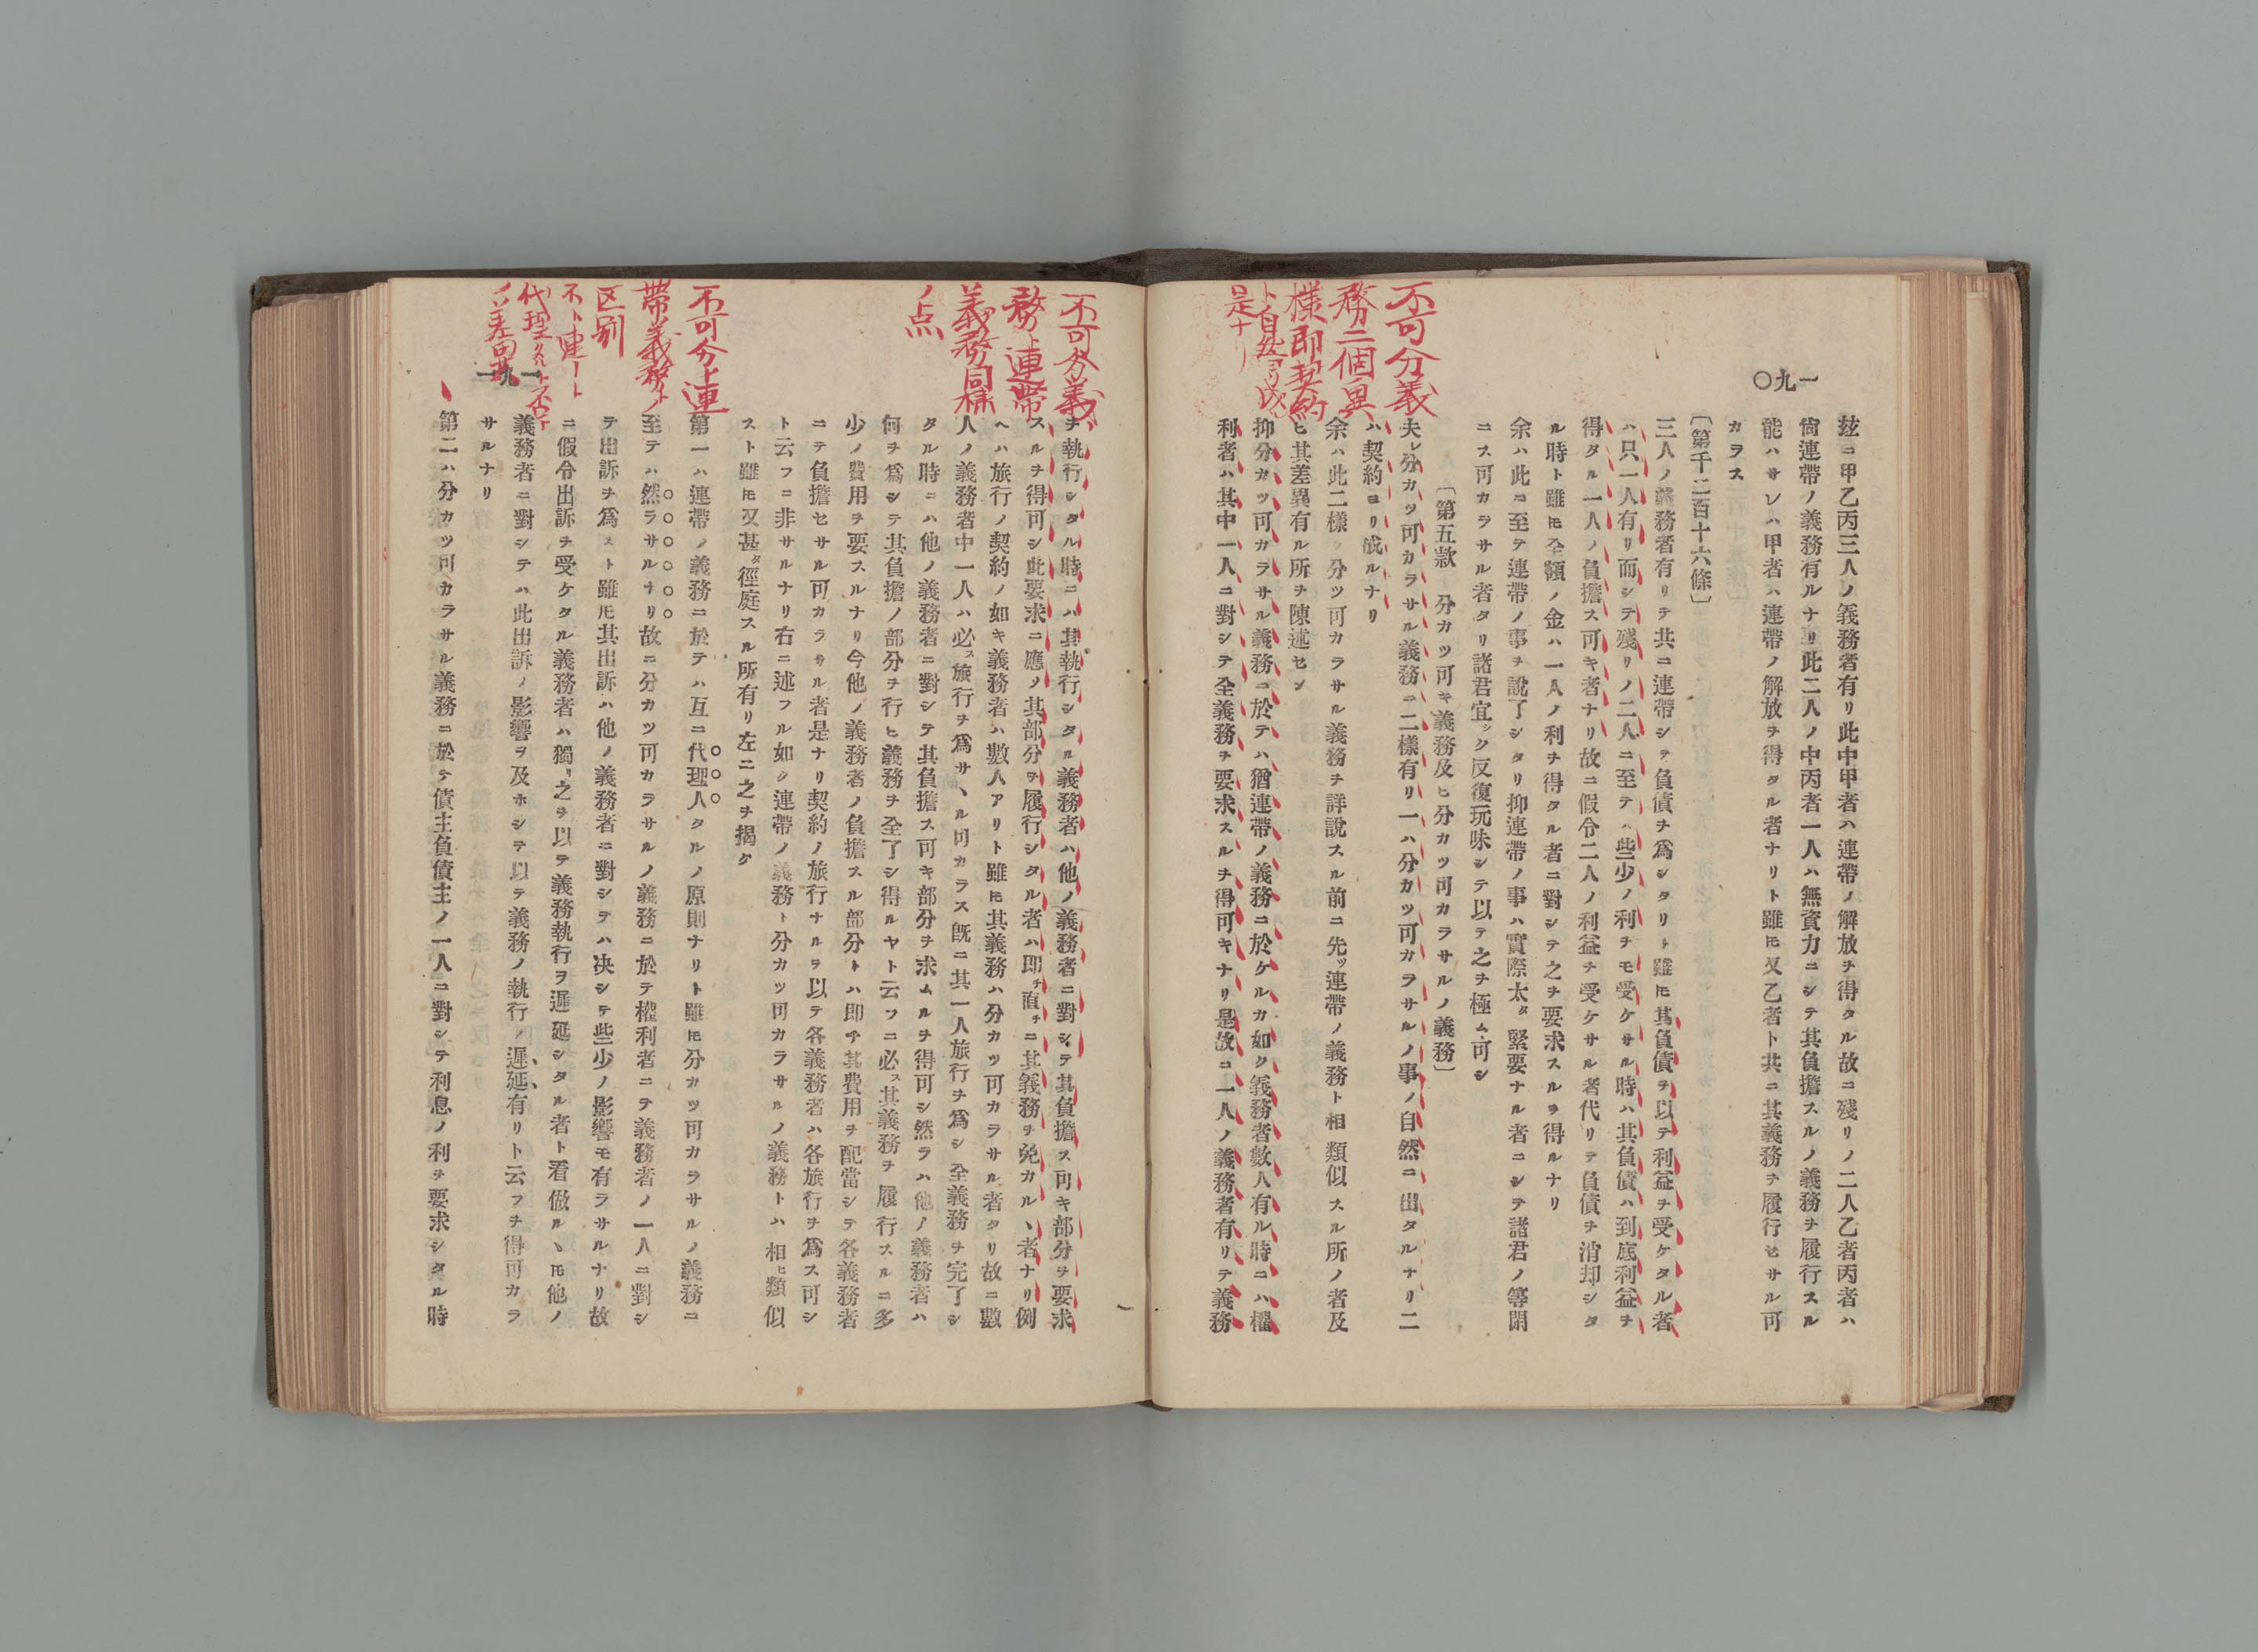 一九〇
玆ニ甲乙丙三人ノ義務者有リ此中甲者ハ連帶ノ解放ヲ得タル故ニ殘リノ二人乙者丙者ハ
尙連帶ノ義務有ルナリ此二人ノ中丙者一人ハ無資力ニシテ其負擔スルノ義務ヲ履行スル
能ハサレハ甲者ハ連帶ノ解放ヲ得タル者ナリト雖𪜈又乙者ト共ニ其義務ヲ履行セサル可
カラス
〔第千二百十六條〕
三人ノ義務者有リテ共ニ連帶シテ負債ヲ爲シタリト雖𪜈其負債ヲ以テ利益ヲ受ケタル者
ハ只一人有リ而シテ殘リノ二人ニ至テハ些少ノ利ヲモ受ケサル時ハ其負債ハ到底利益ヲ
得タル一人ノ負擔ス可キ者ナリ故ニ假令二人ノ利益ヲ受ケサル者代リテ負債ヲ消却シタ
ル時ト雖𪜈全額ノ金ハ一人ノ利ヲ得タル者ニ對シテ之ヲ要求スルヲ得ルナリ
余ハ此ニ至テ連帶ノ事ヲ說了シタリ抑連帶ノ事ハ實際太タ緊要ナル者ニシテ諸君ノ等閑
ニス可カラサル者タリ諸君宜シク反復玩味シテ以テ之ヲ極ム可シ
〔第五款 分カツ可キ義務及ヒ分カツ可カラサルノ義務〕
夫レ分カツ可カラサル義務ニ二樣有リ一ハ分カツ可カラサルノ事ノ自然ニ出タルナリ二
ハ契約ヨリ成ルナリ
余ハ此二樣ノ分ツ可カラサル義務ヲ詳說スル前ニ先ッ連帶ノ義務ト相類似スル所ノ者及
ヒ其差異有ル所ヲ陳述セン
抑分カツ可カラサル義務ニ於テハ猶連帶ノ義務ニ於ケルカ如ク義務者數人有ル時ニハ權
利者ハ其中一人ニ對シテ全義務ヲ要求スルヲ得可キナリ是故ニ一人ノ義務者有リテ義務
不可分義
務二個異
樣即契約
ト自然ノ成
是ナリ
ヲ執行シタル時ニハ其執行シタル義務者ハ他ノ義務者ニ對シテ其負擔ス可キ部分ヲ要求
スルヲ得可シ此要求ニ應ノ其部分ヲ履行シタル者ハ卽チ直チニ其義務ヲ免カルヽ者ナリ例
ヘハ旅行ノ契約ノ如キ義務者ハ數人アリト雖𪜈其義務ハ分カツ可カラサル者タリ故ニ數
人ノ義務者中一人ハ必ス旅行ヲ爲サヽル可カラス旣ニ其一人旅行ヲ爲シ全義務ヲ完了シ
タル時ニハ他ノ義務者ニ對シテ其負擔ス可キ部分ヲ求ムルヲ得可シ然ラハ他ノ義務者ハ
何ヲ爲シテ其負擔ノ部分ヲ行ヒ義務ヲ全了シ得ルヤト云フニ必ス其義務ヲ履行スルニ多
少ノ費用ヲ要スルナリ今他ノ義務者ノ負擔スル部分トハ卽チ其費用ヲ配當シテ各義務者
ニテ負擔セサル可カラサル者是ナリ契約ノ旅行ナルヲ以テ各義務者ハ各旅行ヲ爲ス可シ
ト云フニ非サルナリ右ニ述フル如ク連帶ノ義務ト分カツ可カラサルノ義務トハ相ヒ類似
スト雖𪜈又甚タ徑庭スル所有リ左ニ之ヲ揭ク
第一ハ連帶ノ義務ニ於テハ互ニ代理人タルノ原則ナリト雖𪜈分カツ可カラサルノ義務ニ
至テハ然ラサルナリ故ニ分カツ可カラサルノ義務ニ於テ權利者ニテ義務者ノ一人ニ對シ
テ出訴ヲ爲スト雖𪜈其出訴ハ他ノ義務者ニ對シテハ決シテ些少ノ影響モ有ラサルナリ故
ニ假令出訴ヲ受ケタル義務者ハ獨リ之ヲ以テ義務執行ヲ遲延シタル者ト看做ルヽ𪜈他ノ
義務者ニ對シテハ此出訴ノ影響ヲ及ホシテ以テ義務ノ執行ノ遲延有リト云フヲ得可カラ
サルナリ
第二ハ分カツ可カラサル義務ニ於テ債主負債主ノ一人ニ對シテ利息ノ利ヲ要求シタル時
不可分義
務ト連帶
義務同樣
ノ点
不可分ト連
帶義務トノ
区别
一九一